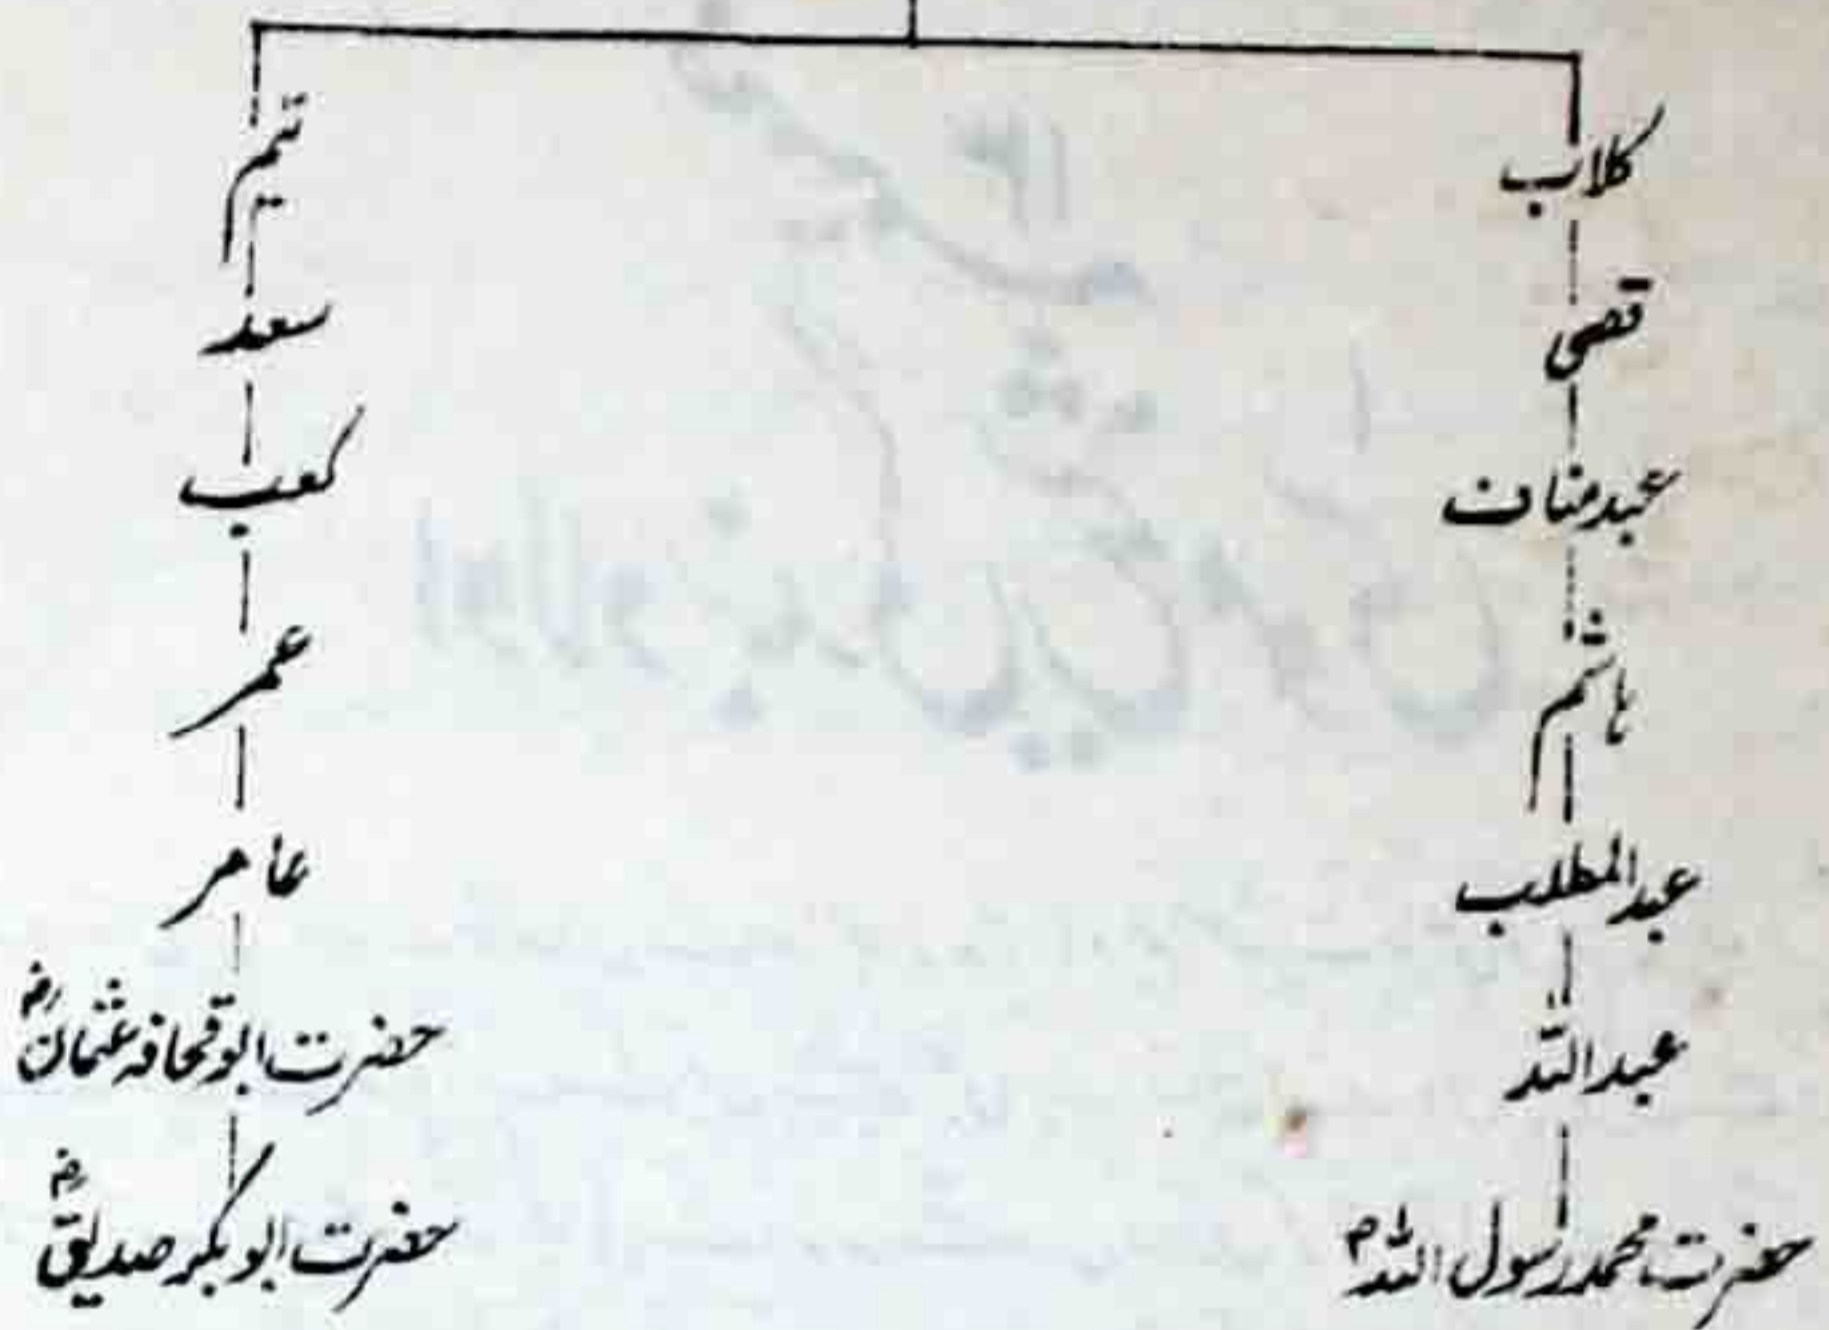 کلاب
قصی
عبدمناف
ہاشم
عبدالمطلب
عبداللہ
حضرت محمد رسول اللہؐ
تیم
سعد
کعب
عمر
عامر
حضرت ابوقحافہ عثمانؓ
حضرت ابوبکر صدیقؓ